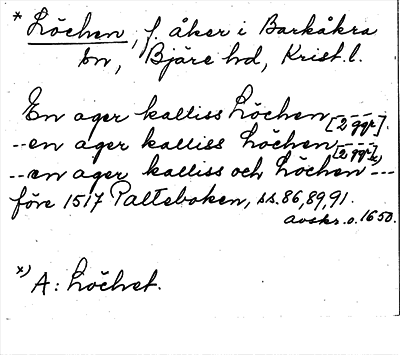 * Löchen, f. åker i Barkåkra
sn, Bjäre hd, Krist. l.
En ager kalliss Löchen [2 ggr].
-- en ager kalliss Löchen [2 ggr]
--- en ager kalliss och Löchen x) ---
före 1517 Palteboken, ss. 86, 89, 91.
avskr. o. 1650.
x) A: Löchet.